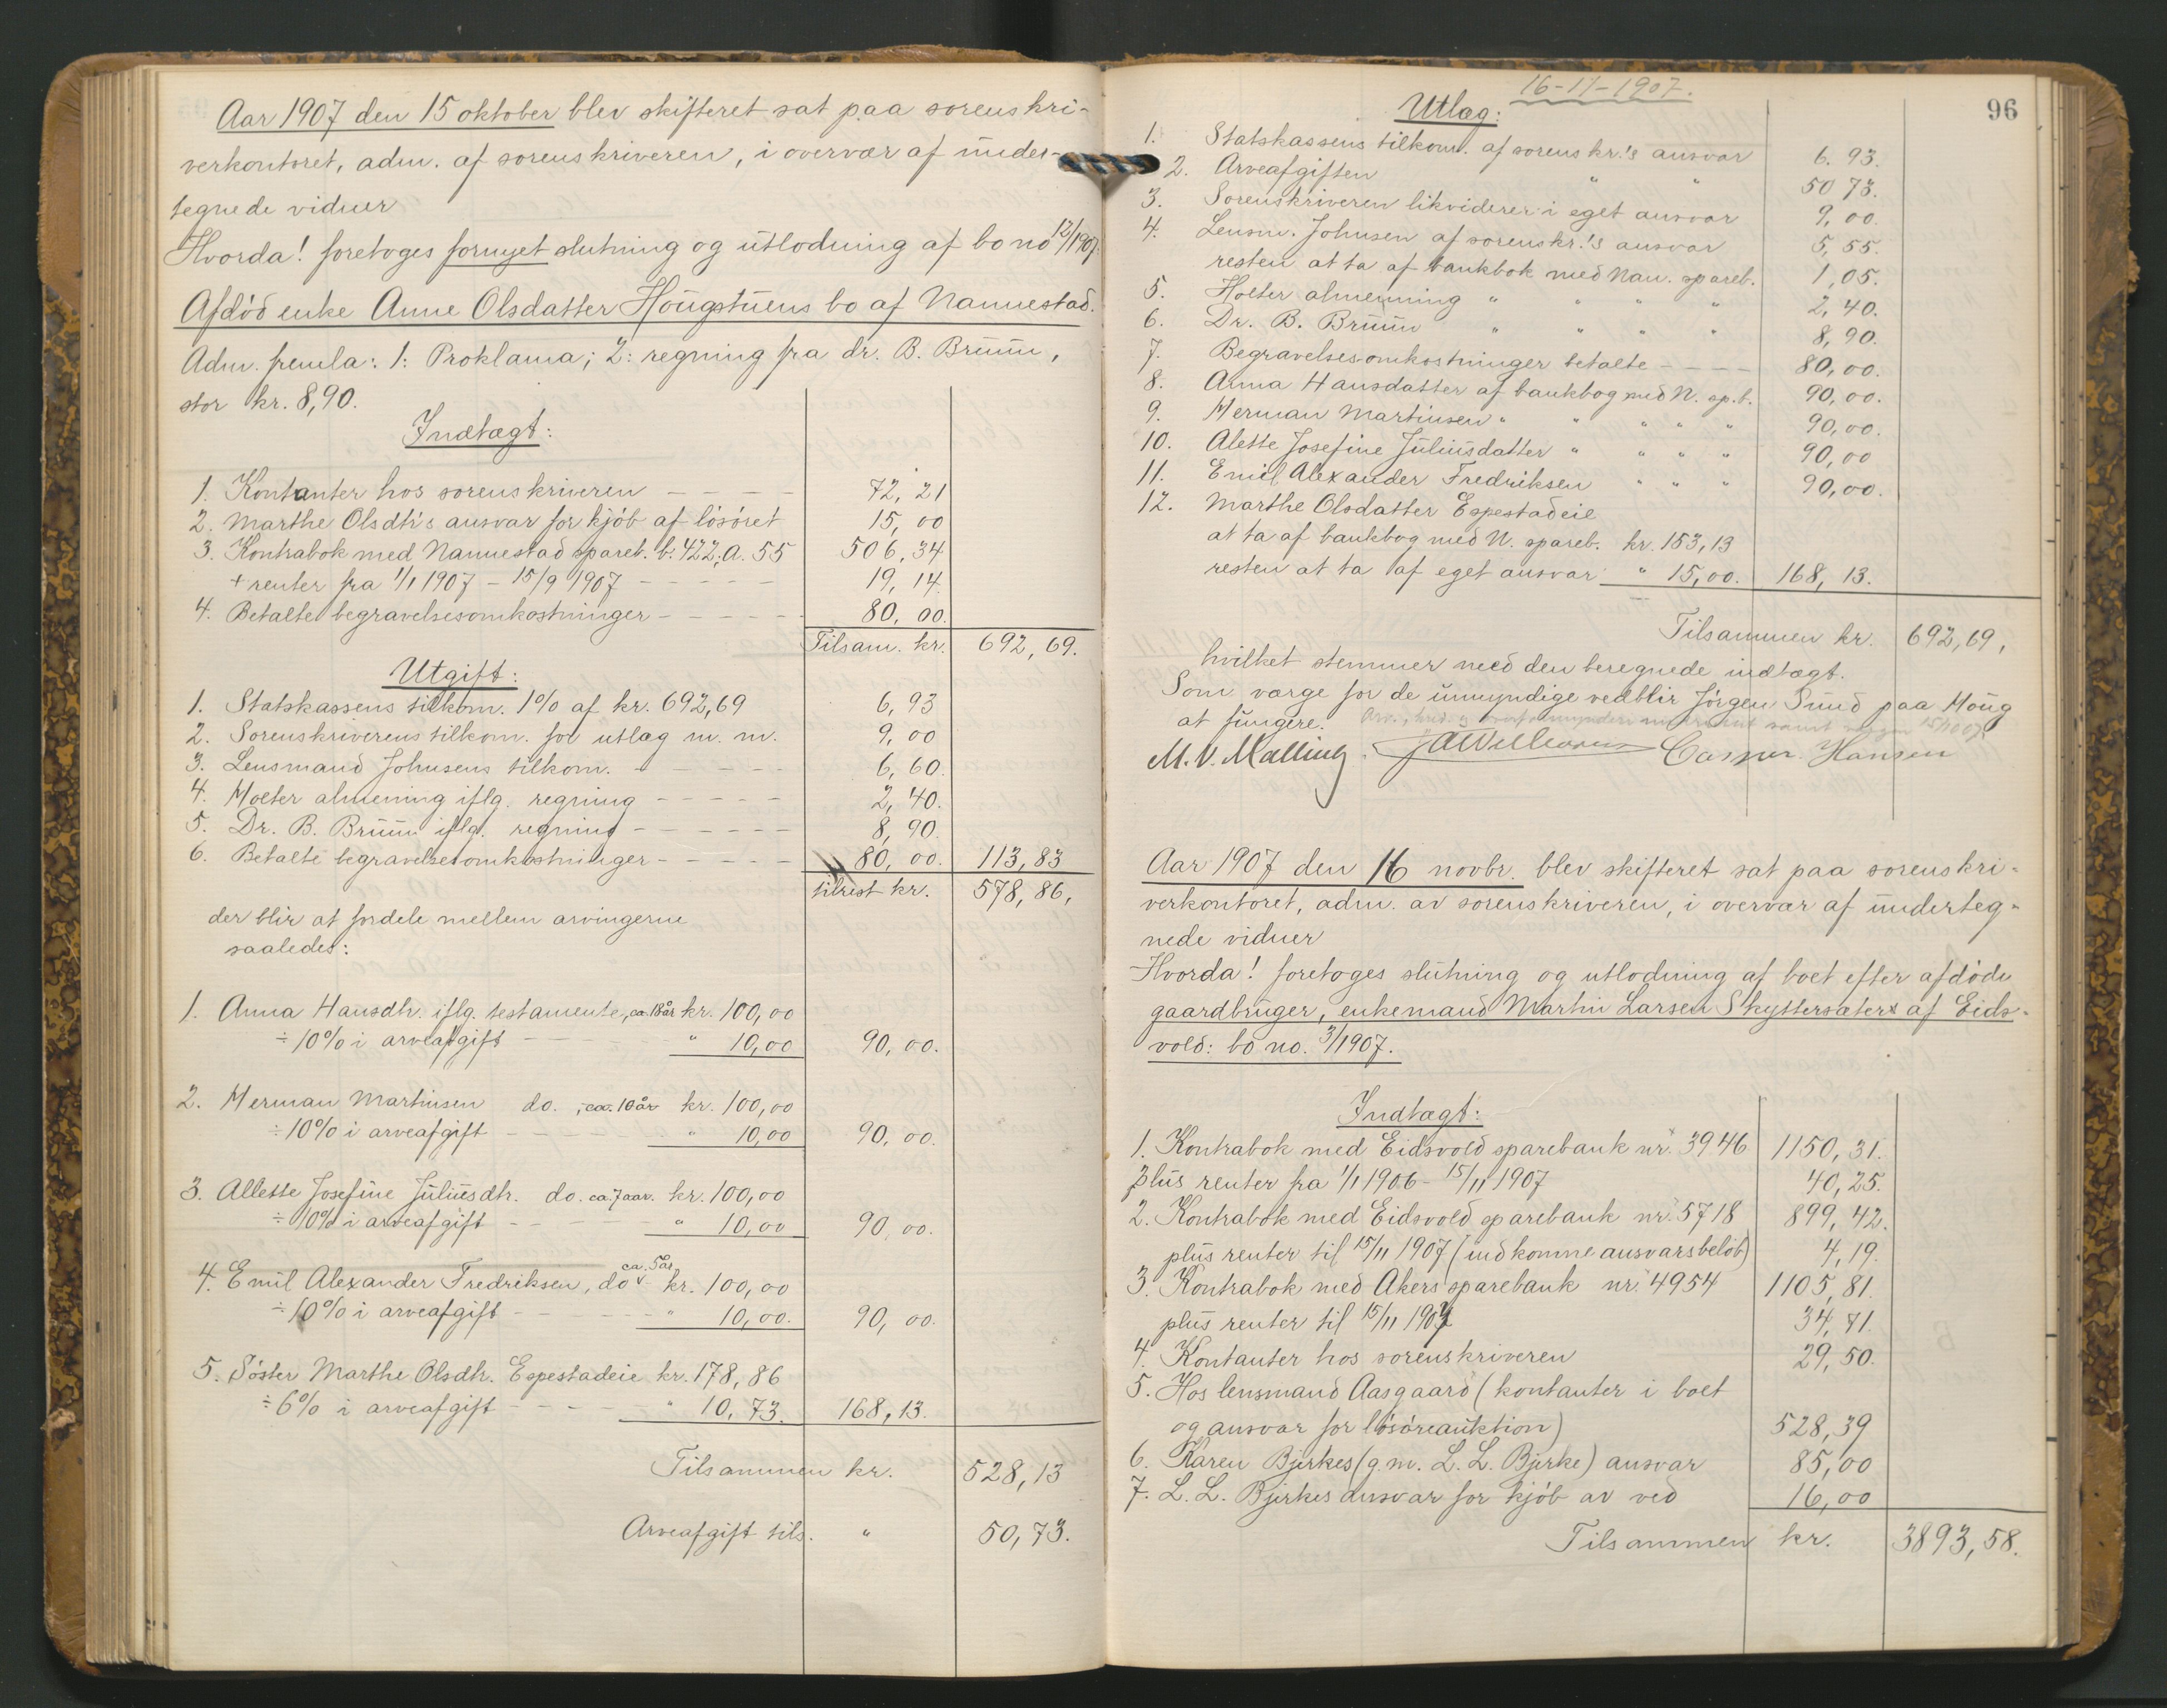 Aar 1907 den 15 oktober blev skifteret sat paa sorenskri-
verkontoret, adm. af sorenskriveren, i overvær af under-
tegnede vidner
Hvorda! foretoges fornyet slutning og utlodning af bo no 12/1907.
Afdöd enke Anne Olsdatter Hougstuens bo af Nannestad.
Adm. fremla: 1: Proklama; 2: regning fra dr. B. Bruun,
stor kr. 8,90.
Indtægt:
1. Kontanter hos sorenskriveren - - - - 72, 21
2. Marthe Olsdtr's ansvar for kjöb af lösöret 15, 00
3. Kontrabok med Nannestad spareb. b. 422, a. 55 506, 34
+ renter fra 1/1 1907 - 15/9 1907 - - - - - 19, 14.
4. Betalte begravelsesomkostninger - - - - - 80, 00.
Tilsam. kr. 692, 69.
Utgift:
1. Statskassens tilkom. 1% af kr. 692,69 6, 93
2. Sorenskriverens tilkom. for utlæg m. m. 9, 00
3. Lensmand Johnsens tilkom. - - - - 6, 60.
4. Holter almening iflg. regning - - - - - 2, 40.
5. Dr. B. Bruun iflg. regning - - - - - - 8, 90.
6. Betalte begravelsesomkostninger - - - - - 80, 00. 113, 83
tilrest kr. 578, 86,
der blir at fordele mellem arvingerne
saaledes:
1. Anna Hansdtr. iflg. testamente, ca. 18 år kr. 100,00
÷ 10% i arveafgift - - - - - " 10,00 90, 00.
2. Herman Martinsen do. , ca. 10 år kr. 100,00
÷ 10% i arveafgift - - - - - " 10,00 90, 00.
3. Allette Josefine Juliusdtr. do. ca. 7 aar. kr. 100,00
÷ 10% i arveafgift - - - - - " 10,00 90, 00.
4. Emil Alexander Fredriksen, do ca. 5 år kr. 100,00
÷ 10% i arveafgift - - - - - " 10,00. 90, 00.
5. Söster Marthe Olsdtr. Espestadeie kr. 178, 86
÷ 6% i arveafgift - - - - - " 10, 73. 168, 13.
Tilsammen kr. 528, 13
Arveafgift tils. " 50, 73.
16-11-1907.
96
Utlæg:
1. Statskassens tilkom. af sorenskr.'s ansvar 6. 93.
2. Arveafgiften " " 50 73.
3. Sorenskriveren likviderer i eget ansvar 9, 00.
4. Lensm. Johnsen af sorenskr.'s ansvar 5, 55.
resten at ta af bankbok med Nan. spareb. 1, 05.
5. Holter almenning " " " " 2, 40.
6. Dr. B. Bruun " " " " 8, 90.
7. Begravelsesomkostninger betalte - - - - 80, 00.
8. Anna Hansdatter af bankbog med N. sp.b. 90, 00.
9. Herman Martinsen " " " " " 90, 00.
10. Alette Josefine Juliusdatter " " " " 90, 00
11. Emil Alexander Fredriksen " " " 90, 00.
12. Marthe Olsdatter Espestadeie
at ta af bankbog med N. spareb. kr. 153, 13
resten at ta af eget ansvar " 15,00. 168, 13.
Tilsammen kr. 692, 69,
hvilket stemmer med den beregnede indtægt.
Som værge for de umyndige vedblir Jörgen Sund paa Houg
at fungere.
M. V. Malling. Casper Hansen
Aar 1907 den 16 novbr. blev skifteret sat paa sorenskri-
verkontoret, adm. av sorenskriveren, i overvær af underteg-
nede vidner
Hvorda! foretoges slutning og utlodning af boet efter afdöde
gaardbruger, enkemand Martin Larsen Skyttersæters af Eids-
vold: bo no. 3/1907.
Indtægt:
1. Kontrabok med Eidsvold sparebank nr. 3946 1150, 31.
plus renter fra 1/1 1906 - 15/11 1907 40, 25.
2. Kontrabok med Eidsvold sparebank nr. 5718 899, 42.
plus renter til 15/11 1907 (indkomne ansvarsbelöb) 4, 19.
3. Kontrabok med Akers sparebank nr. 4954 1105, 81.
plus renter til 15/11 1907 34, 71.
4. Kontanter hos sorenskriveren 29, 50.
5. Hos lensmand Aasgaard (kontanter i boet
og ansvar for lösöreauktion) 528, 39
6. Karen Bjerkes (g. m. L. L. Bjerke) ansvar 85, 00
7. L. L. Bjerkes ansvar for kjöb av ved 16, 00
Tilsammen kr. 3893, 58.